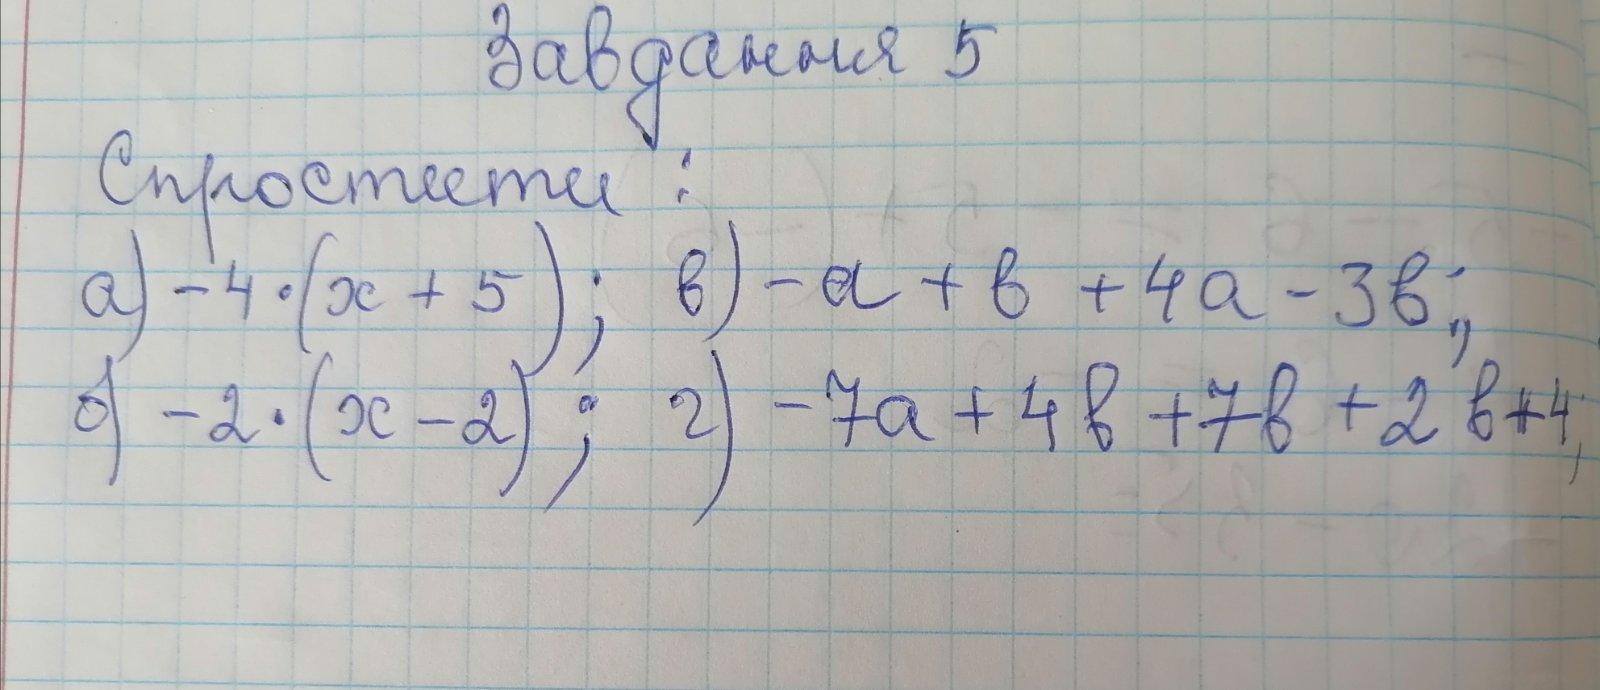 Завдання 5
Спростити:
а) -4·(x + 5); в) -a + b + 4a - 3b;
б) -2·(x - 2); г) -7a + 4b + 7b + 2b + 4;